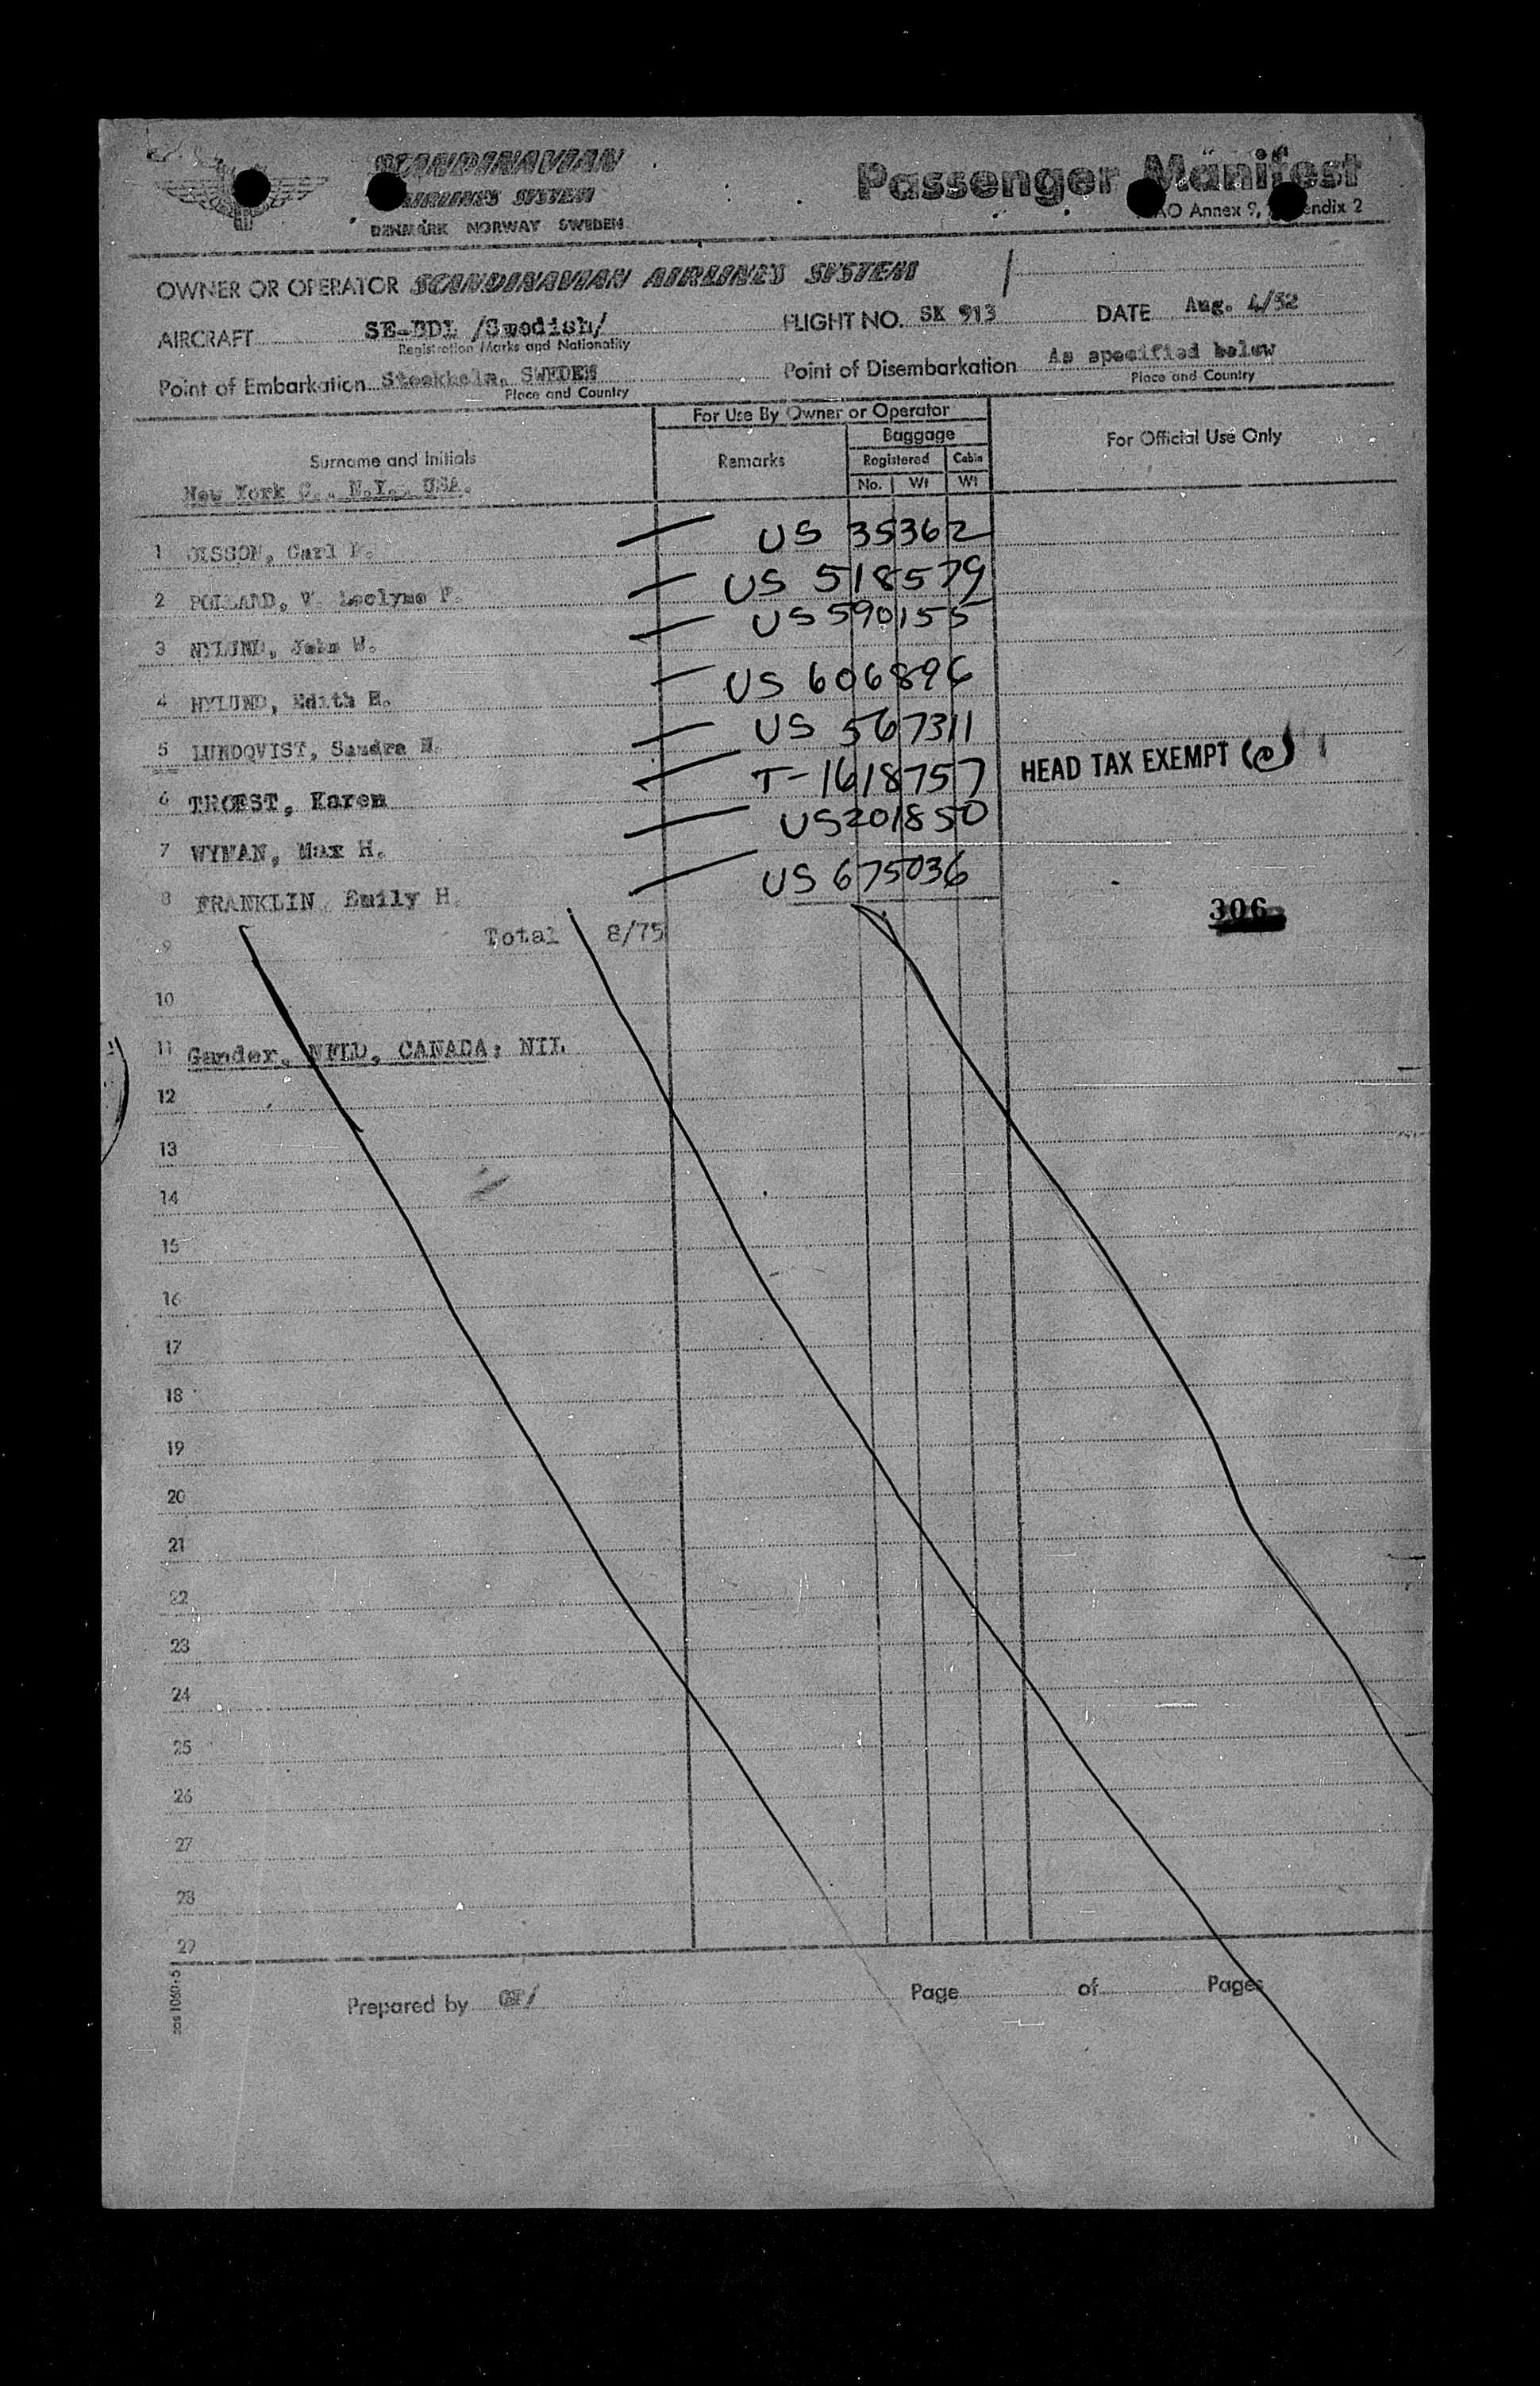 SCANDINAVIAN
AIRLINES SYSTEM
DENMARK NORWAY SWEDEN
Passenger Manifest
Annex 9, Appendix 2
OWNER OR OPERATOR SCANDINAVIAN AIRLINES SYSTEM
AIRCRAFT SE-BDL /Swedish/ FLIGHT NO. SK 913 DATE Aug. 4/52
Registration Marks and Nationality
Point of Embarkation Stockholm, SWEDEN Point of Disembarkation As specified below
Place and Country Place and Country
For Use By Owner or Operator
Baggage
For Official Use Only
Surname and Initials Remarks Registered Cabin
No. Wt Wt
New York C., N.Y., USA.
1 OLSSON, Carl US 35362
2 POLLARD, V. F. US 518579
3 NYLUND, John W. US 590155
4 NYLUND, Edith E. US 606896
5 LUNDQVIST, Sandra N. US 567311
6 TROEST, Karen T-1618757 HEAD TAX EXEMPT
7 WYMAN, Max H. US201850
8 FRANKLIN, Emily H. US 675036
306
9 Total 8/75
10
11 Gander, NFLD, CANADA: NIL
12
13
14
15
16
17
18
19
20
21
22
23
24
25
26
27
28
29
Prepared by Page of Pages
sas 1060-5